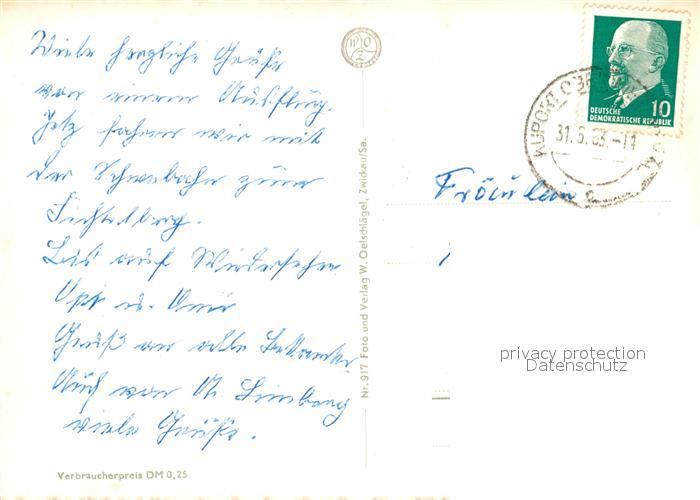 Viele herzliche Grüße
von einem Ausflug.
Jetz fahren wir mit
der Schwebebahn zum
Fichtelberg.
Bis auf Wiedersehen
Gruß an alle Bekannten
Auch von
viele Grüße.
Verbraucherpreis DM 0,25
Nr. 917 Foto und Verlag W. Oelschlägel, Zwickau/Sa.
WO
Z
10
DEUTSCHE
DEMOKRATISCHE REPUBLIK
KURORT
31.5.63.-11
Fräulein
privacy protection
Datenschutz